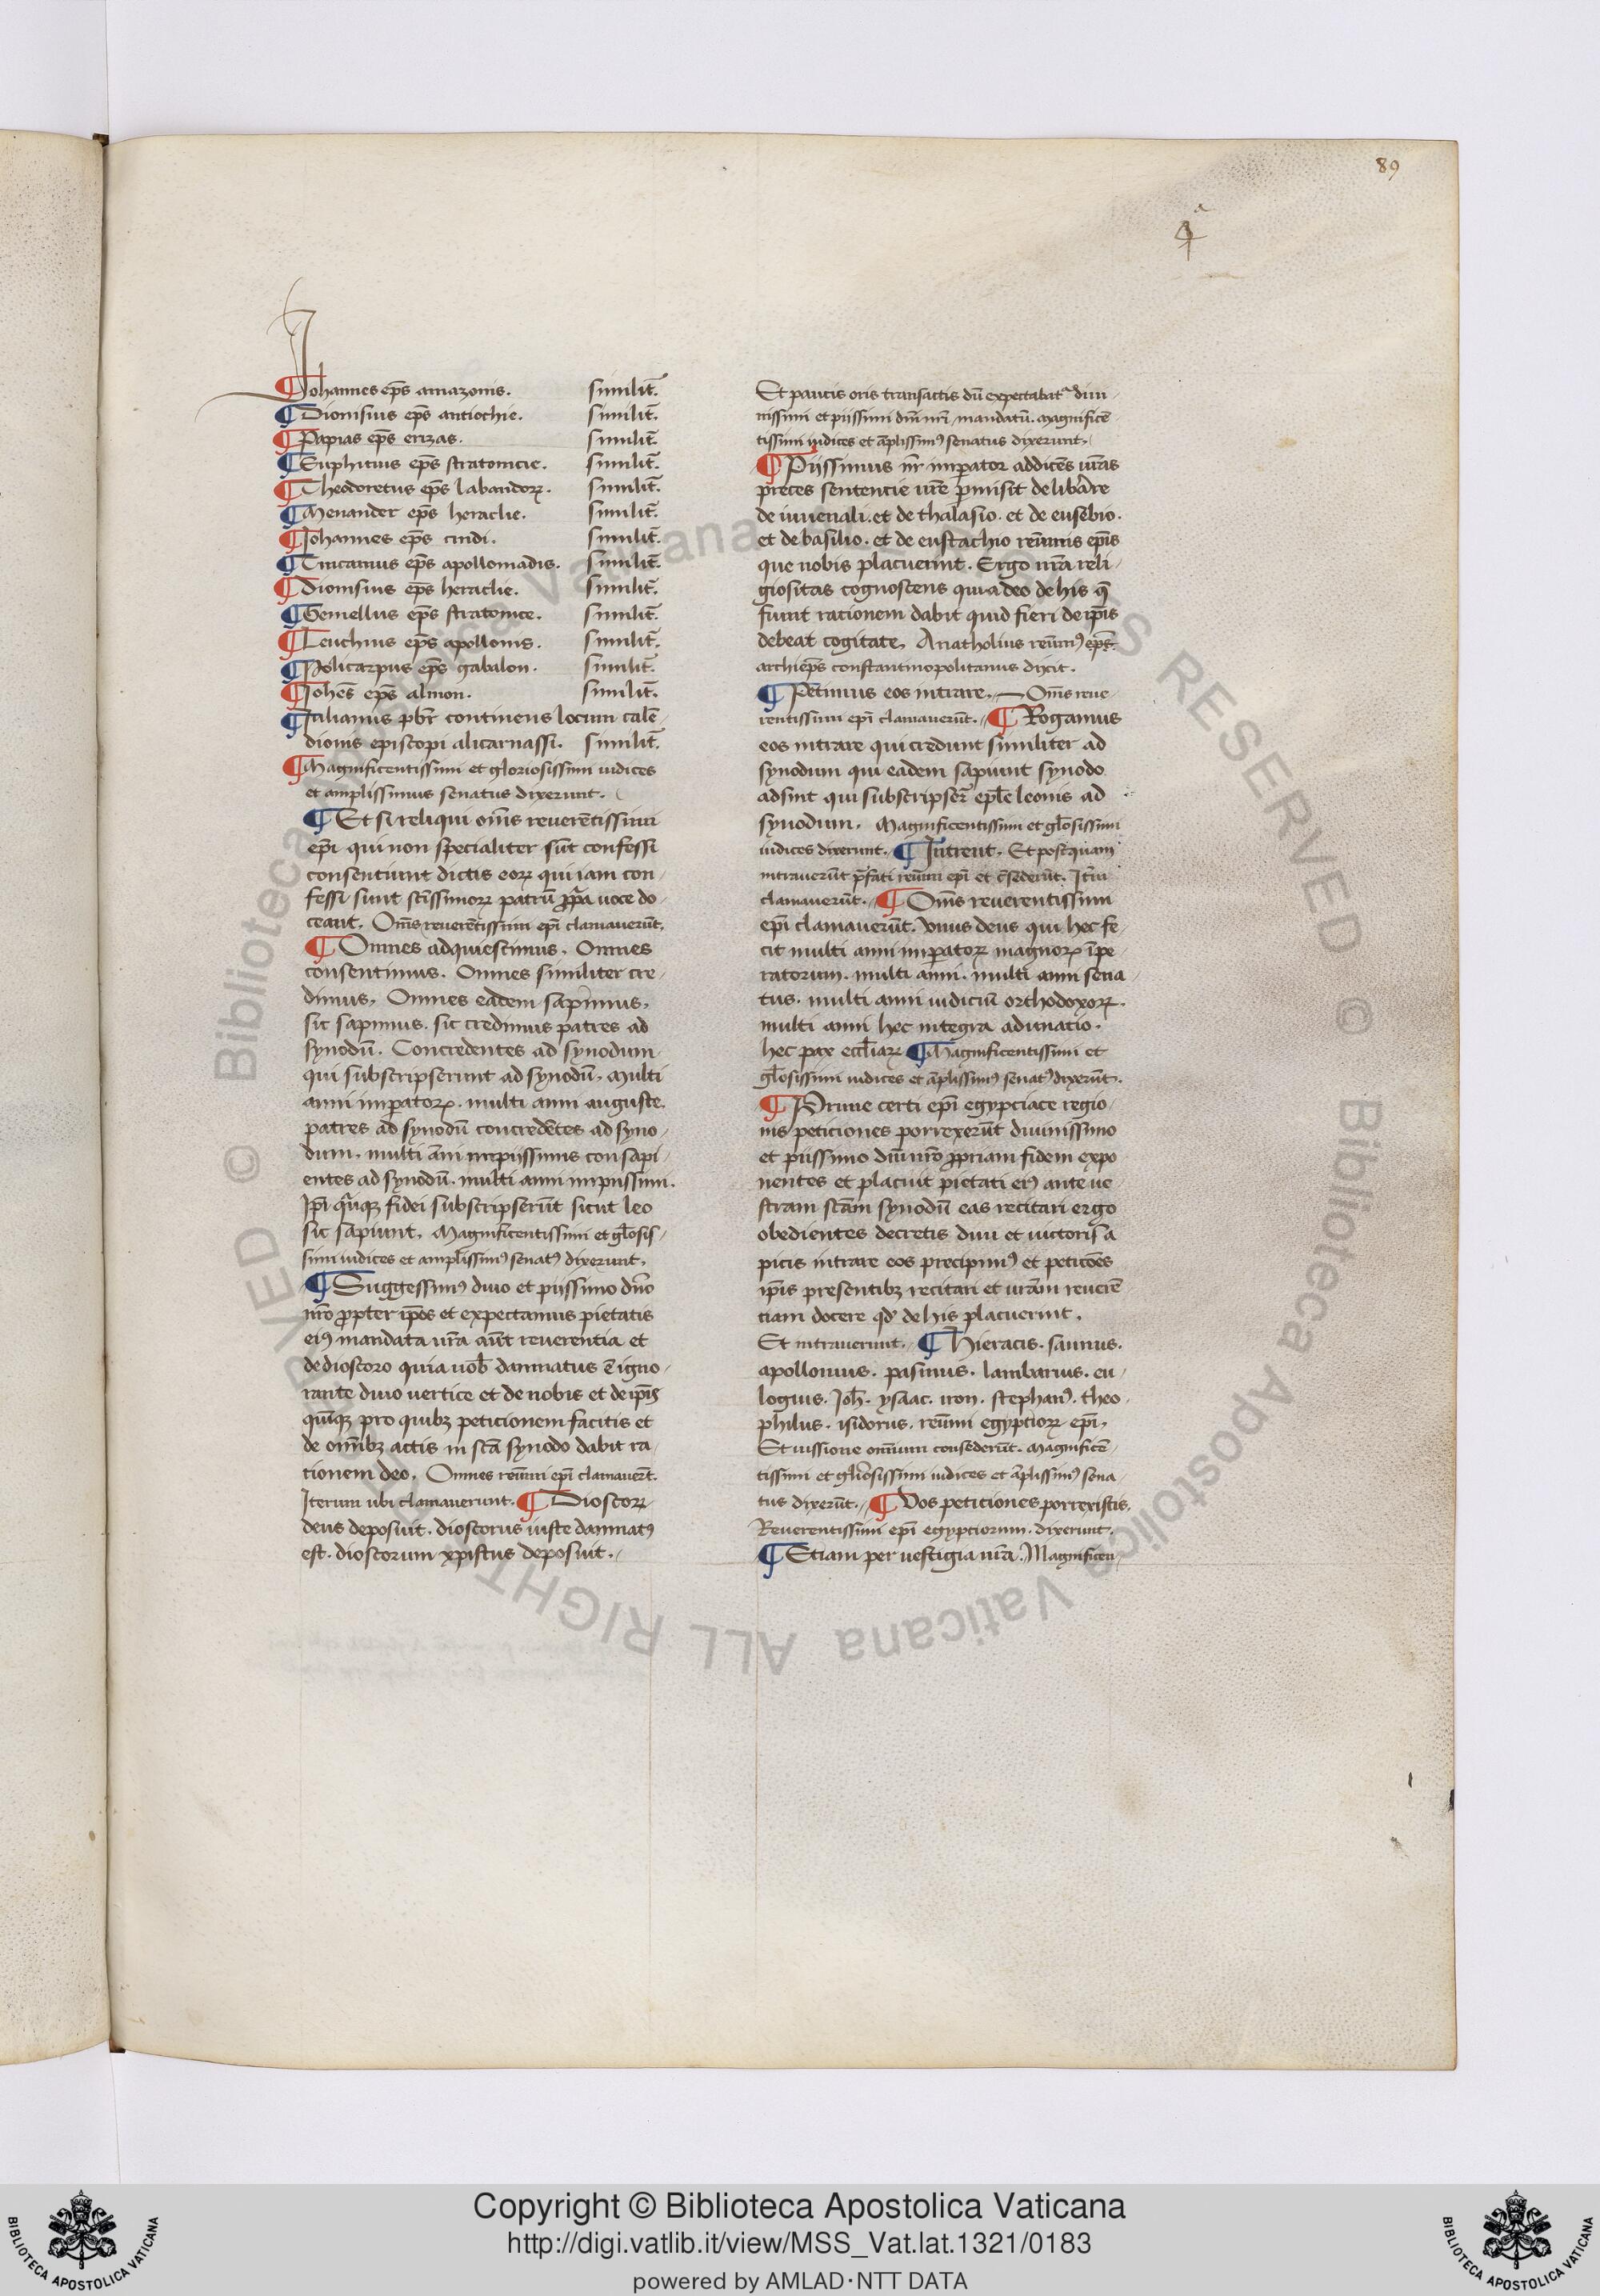 89
¶ Johannes ep̅s amazonis. similit̅.
¶ Dionisius ep̅s antiochie. similit̅.
¶ Papias ep̅s erizas. similit̅.
¶ Euphitius ep̅s stratonicie. similit̅.
¶ Theodoretus ep̅s labandoꝝ. similit̅.
¶ Menander ep̅s heraclie. similit̅.
¶ Johannes ep̅s cindi. similit̅.
¶ ep̅s apolloniadis. similit̅.
¶ Dionisius ep̅s heraclie. similit̅.
¶ Gemellus ep̅s stratonice. similit̅.
¶ Leuchius ep̅s apollonis. similit̅.
¶ Policarpus ep̅s gabalon. similit̅.
¶ Joh̅es ep̅s alinon. similit̅.
¶ Julianus pb̅r continens locum cale̅
dionis episcopi alicarnassi. similit̅.
¶ Magnificentissimi et gloriosissimi iudices
et amplissimus senatus dixerunt.
¶ Et si reliqui om̅s revere̅tissimi
ep̅i qui non specialiter su̅t confessi
consentiunt dictis eoꝝ qui iam con
fessi sunt sc̅issimoꝝ patru̅ ꝓp̅a uoce do
ceant. Om̅s revere̅tissimi ep̅i clamaueru̅t.
¶ Omnes adquiescimus. Omnes
consentimus. Omnes similiter cre
dimus. Omnes eadem sapimus.
sic sapimus. sic credimus patres ad
synodu̅. Concredentes ad synodum
qui subscripserunt ad synodu̅. Multi
anni imp̅atoꝝ. multi anni auguste.
patres ad synodu̅ concrede̅tes ad syno
dum. multi a̅ni impiissimis con sapi
entes ad synodu̅. multi anni impiissimi.
Ip̅i fidei subscripseru̅t sicut leo
sic sapiunt. Magnificentissimi et gl̅osis
simi iudices et amplissim⁹ senat⁹ dixerunt.
¶ Suggessim⁹ diuo et piissimo dn̅o
nr̅o ꝓpter ip̅os et expectamus pietatis
ei⁹ mandata ur̅a aut̅ reuerentia et
de dioscoro quia uob̅ damnatus e̅ igno
rante diuo uertice et de nobis et de ip̅is
qui̅qꝫ pro quibꝫ peticionem facitis et
de om̅ibꝫ actis in sc̅a synodo dabit ra
tionem deo. Omnes reu̅mi ep̅i clamaueru̅t.
Iterum ubi clamauerunt. ¶ Dioscoꝝ
deus deposuit. dioscorus iuste damnat⁹
est. dioscorum xp̅istus deposuit.
Et paucis oris transactis du̅ expectabat̅ diui
nissimi et piissimi dn̅i nr̅i mandatu̅. magnifice̅
tissimi iudices et a̅plissim⁹ senatus dixerunt.
¶ Piissimus nr̅ imp̅ator addice̅s ur̅as
preces sentencie ur̅e p̅misit delib̅are
de iuuenali. et de thalasio. et de eusebio.
et de basilio. et de eustachio reu̅mis ep̅is
que nobis placuerint. Ergo ur̅a reli
giositas cognoscens quia deo de his q̅
fiunt racionem dabit quid fieri de ip̅is
debeat cogitate. Anatholius reu̅m⁹ ep̅s.
archiep̅s constantinopolitanus dixit.
¶ Petimus eos intrare. Om̅s reue
rentissimi ep̅i clamaueru̅t. ¶ Rogamus
eos intrare qui credunt similiter ad
synodum qui eadem sapiunt synodo
adsint qui subscripser̅ ep̅le leonis ad
synodum. Magnificentissimi et gl̅osissimi
iudices dixerunt. ¶ Intrent. Et postquam
intraueru̅t p̅fati reu̅mi ep̅i et c̅sederu̅t. Ite̅m
clamaueru̅t. ¶ Om̅s reuerentissimi
ep̅i clamaueru̅t. Unus deus qui hec fe
cit multi anni imp̅atoꝝ magnoꝝ i̅pe
ratorum. multi anni. multi anni sena
tus. multi anni iudiciu̅ orthodoxoꝝ.
multi anni hec integra adunatio.
hec pax eccl̅iaꝝ ¶ Magnificentissimi et
gl̅osissimi iudices et a̅plissim⁹ senat⁹ dixeru̅t.
¶ Prime certi ep̅i egypciace regio
nis peticiones porrexeru̅t diuinissimo
et piissimo ꝓpriam fidem expo
nentes et placuit pietati ei⁹ ante ue
stram sc̅am synodu̅ eas recitari ergo
obedientes decretis diui et uictoris a
picis intrare eos precipim⁹ et petico̅es
ip̅is presentibꝫ recitari et ur̅am reuere̅
tiam docere qd̅ de his placuerint.
Et intrauerunt. ¶ Hieracis. saunus.
apollonius. pasinius. lambarius. eu
logius. Joh̅. ysaac. iron. stephan⁹. theo
philus. isidorus. reu̅mi egyptioꝝ ep̅i.
Et iussione omnium consederu̅t. Magnifice̅
tissimi et gl̅iosissimi iudices et a̅plissim⁹ sena
tus dixeru̅t. ¶ Vos peticiones porrexistis.
Reuerentissimi ep̅i egyptiorum. dixerunt.
¶ Etiam per uestigia ur̅a. Magnificen
Copyright © Biblioteca Apostolica Vaticana
http://digi.vatlib.it/view/MSS_Vat.lat.1321/0183
powered by AMLAD·NTT DATA
BIBLIOTECA APOSTOLICA VATICANA
BIBLIOTECA APOSTOLICA VATICANA
© Biblioteca Apostolica Vaticana ALL RIGHTS RESERVED
© Biblioteca Apostolica Vaticana ALL RIGHTS RESERVED